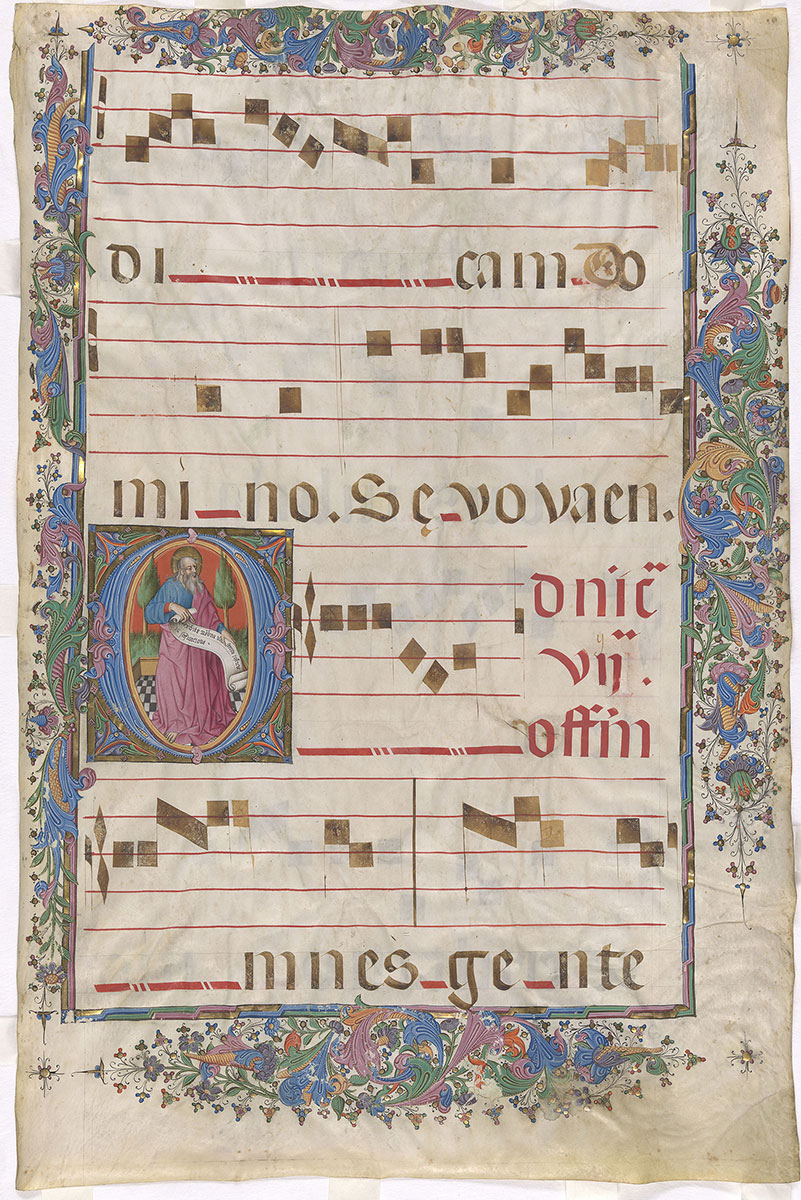 di cam do
mi no. Sę vo vaen.
O dnic̄
vij̄.
offm
mnes gente